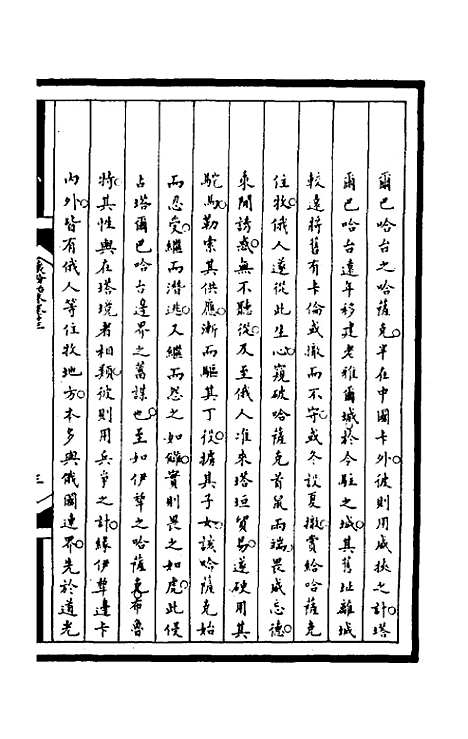 爾巴哈台之哈薩克半在中國卡外彼則用威挾之計塔
爾巴哈台遠年移建老雅爾城於今駐之城其舊址離城
較遠將舊有卡倫或撤而不守或冬設夏撤賞給哈薩克
住牧俄人遂從此生心窺破哈薩克首鼠兩端畏威忘德
乘間誘惑無不聽從及至俄人准來塔垣貿易遂硬用其
駝馬勒索其供應漸而驅其丁從擄其子女該哈薩克始
而忍受繼而潛逃又繼而怨之如讎實則畏之如虎此侵
占塔爾巴哈台邊界之蓄謀也至如伊犂之哈薩克布魯
特其性與在塔境者相類彼則用兵爭之計緣伊犂邊卡
內外皆有俄人等住牧地方本多與俄國連界先於道光
三